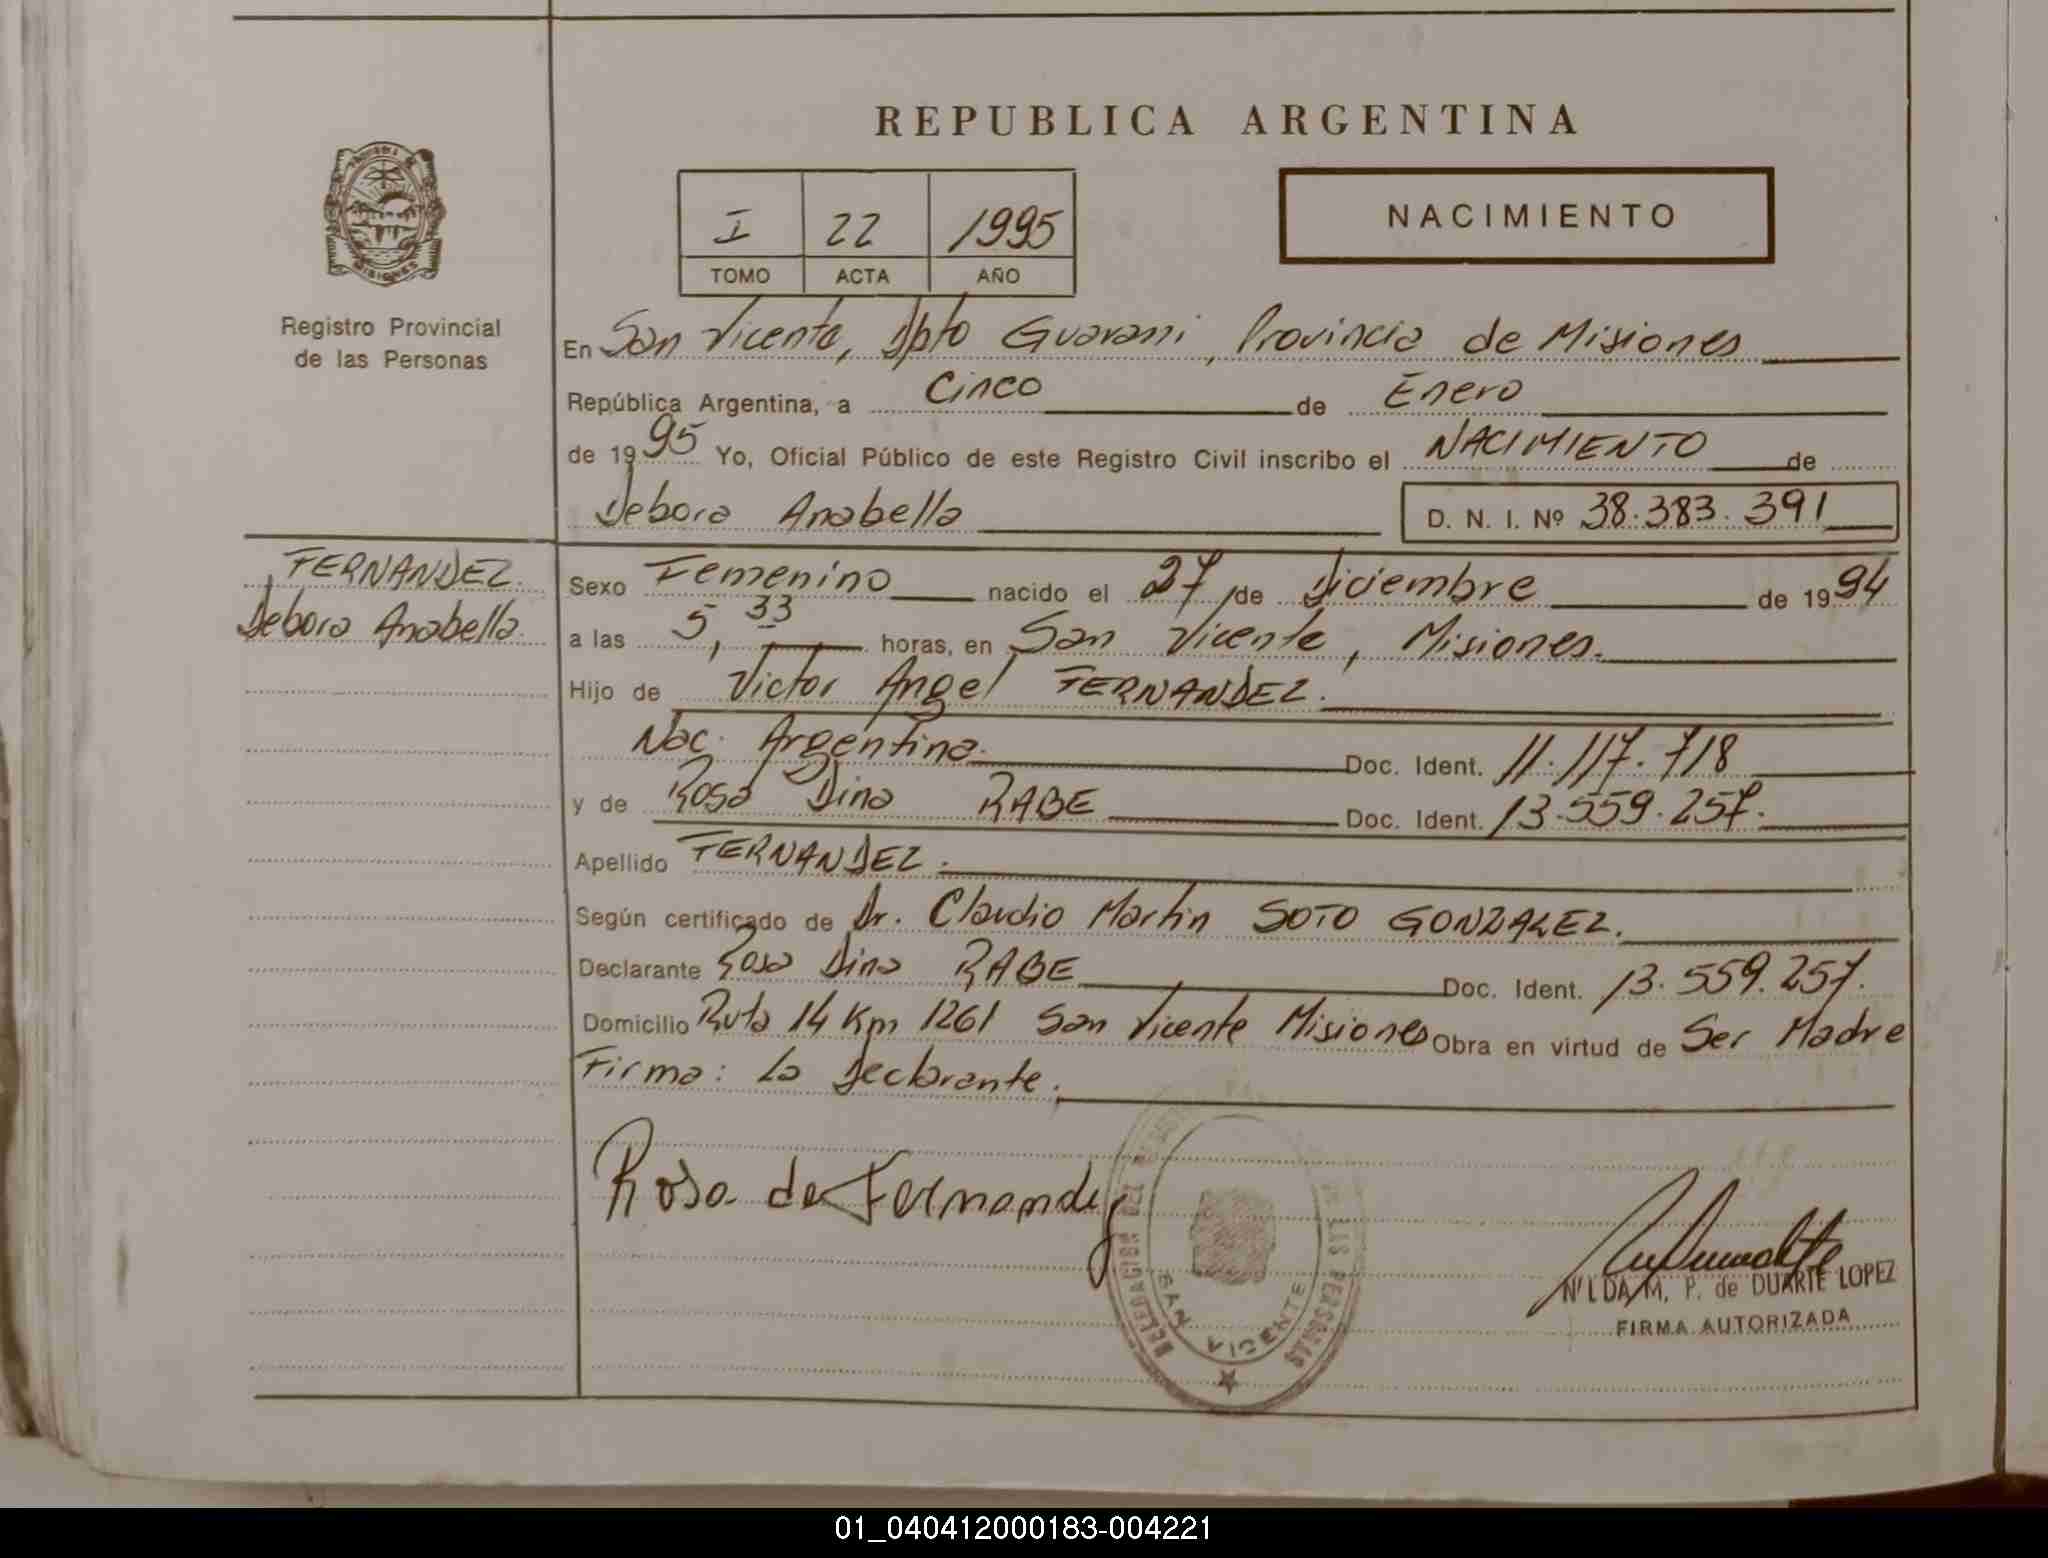 REPUBLICA ARGENTINA
I 22 1995
TOMO ACTA AÑO
NACIMIENTO
MISIONES
Registro Provincial
de las Personas
En San Vicente, Dpto Guarani, Provincia de Misiones
República Argentina, a Cinco de Enero
de 1995 Yo, Oficial Público de este Registro Civil inscribo el NACIMIENTO de
Debora Anabella D. N. I. Nº 38.383.391
FERNANDEZ.
Debora Anabella.
Sexo Femenino nacido el 27 de Diciembre de 1994
a las 5, 33 horas, en San Vicente, Misiones.
Hijo de Victor Angel FERNANDEZ.
Nac. Argentina. Doc. Ident. 11.117.718
y de Rosa Dina RABE Doc. Ident. 13.559.257.
Apellido FERNANDEZ.
Según certificado de Dr. Claudio Martin SOTO GONZALEZ.
Declarante Rosa Dina RABE Doc. Ident. 13.559.257.
Domicilio Ruta 14 Km 1261 San Vicente Misiones Obra en virtud de Ser Madre
Firma: La Declarante.
Rosa de Fernandez
DE LAS PERSONAS
SAN VICENTE
NILDA M. P. de DUARTE LOPEZ
FIRMA AUTORIZADA
01_040412000183-004221